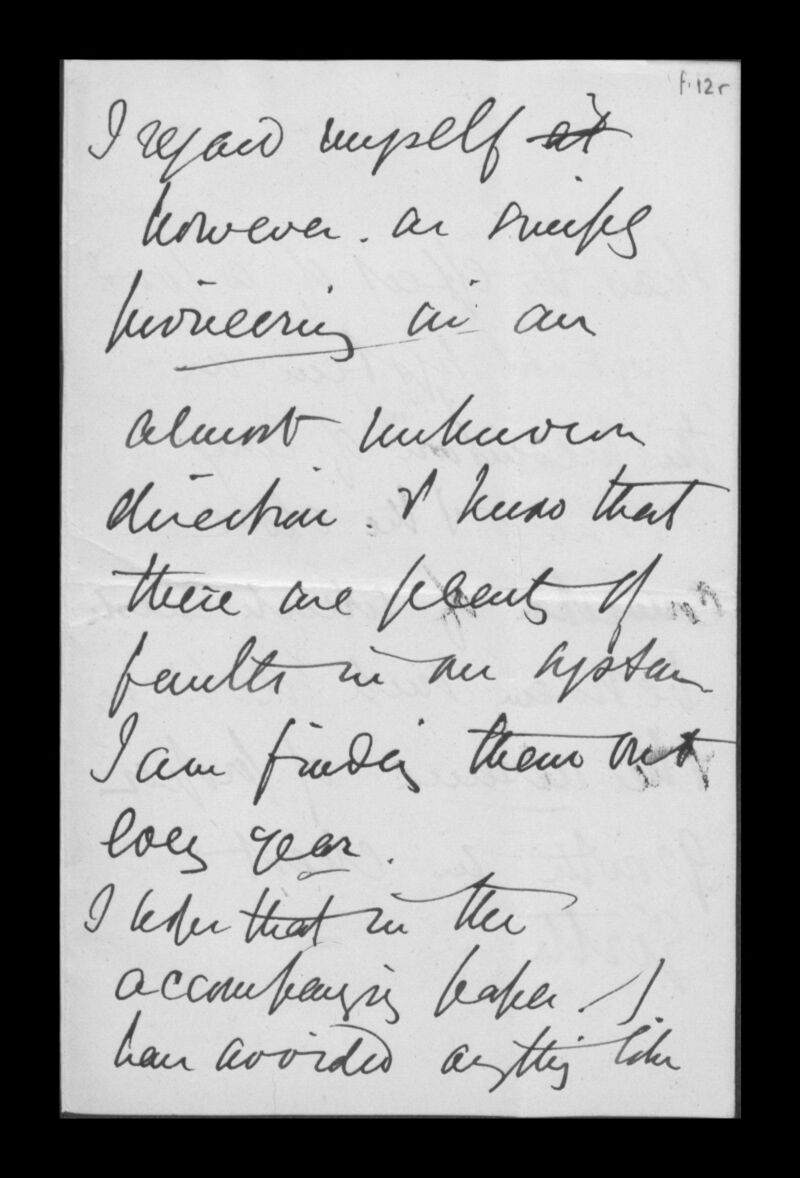 f.12r
I regard myself at
however. as simply
pioneering in an
almost unknown
direction. I know that
there are plenty of
faults in our system
I am finding them out
every year.
I hope that in the
accompanying paper. I
have avoided anything like